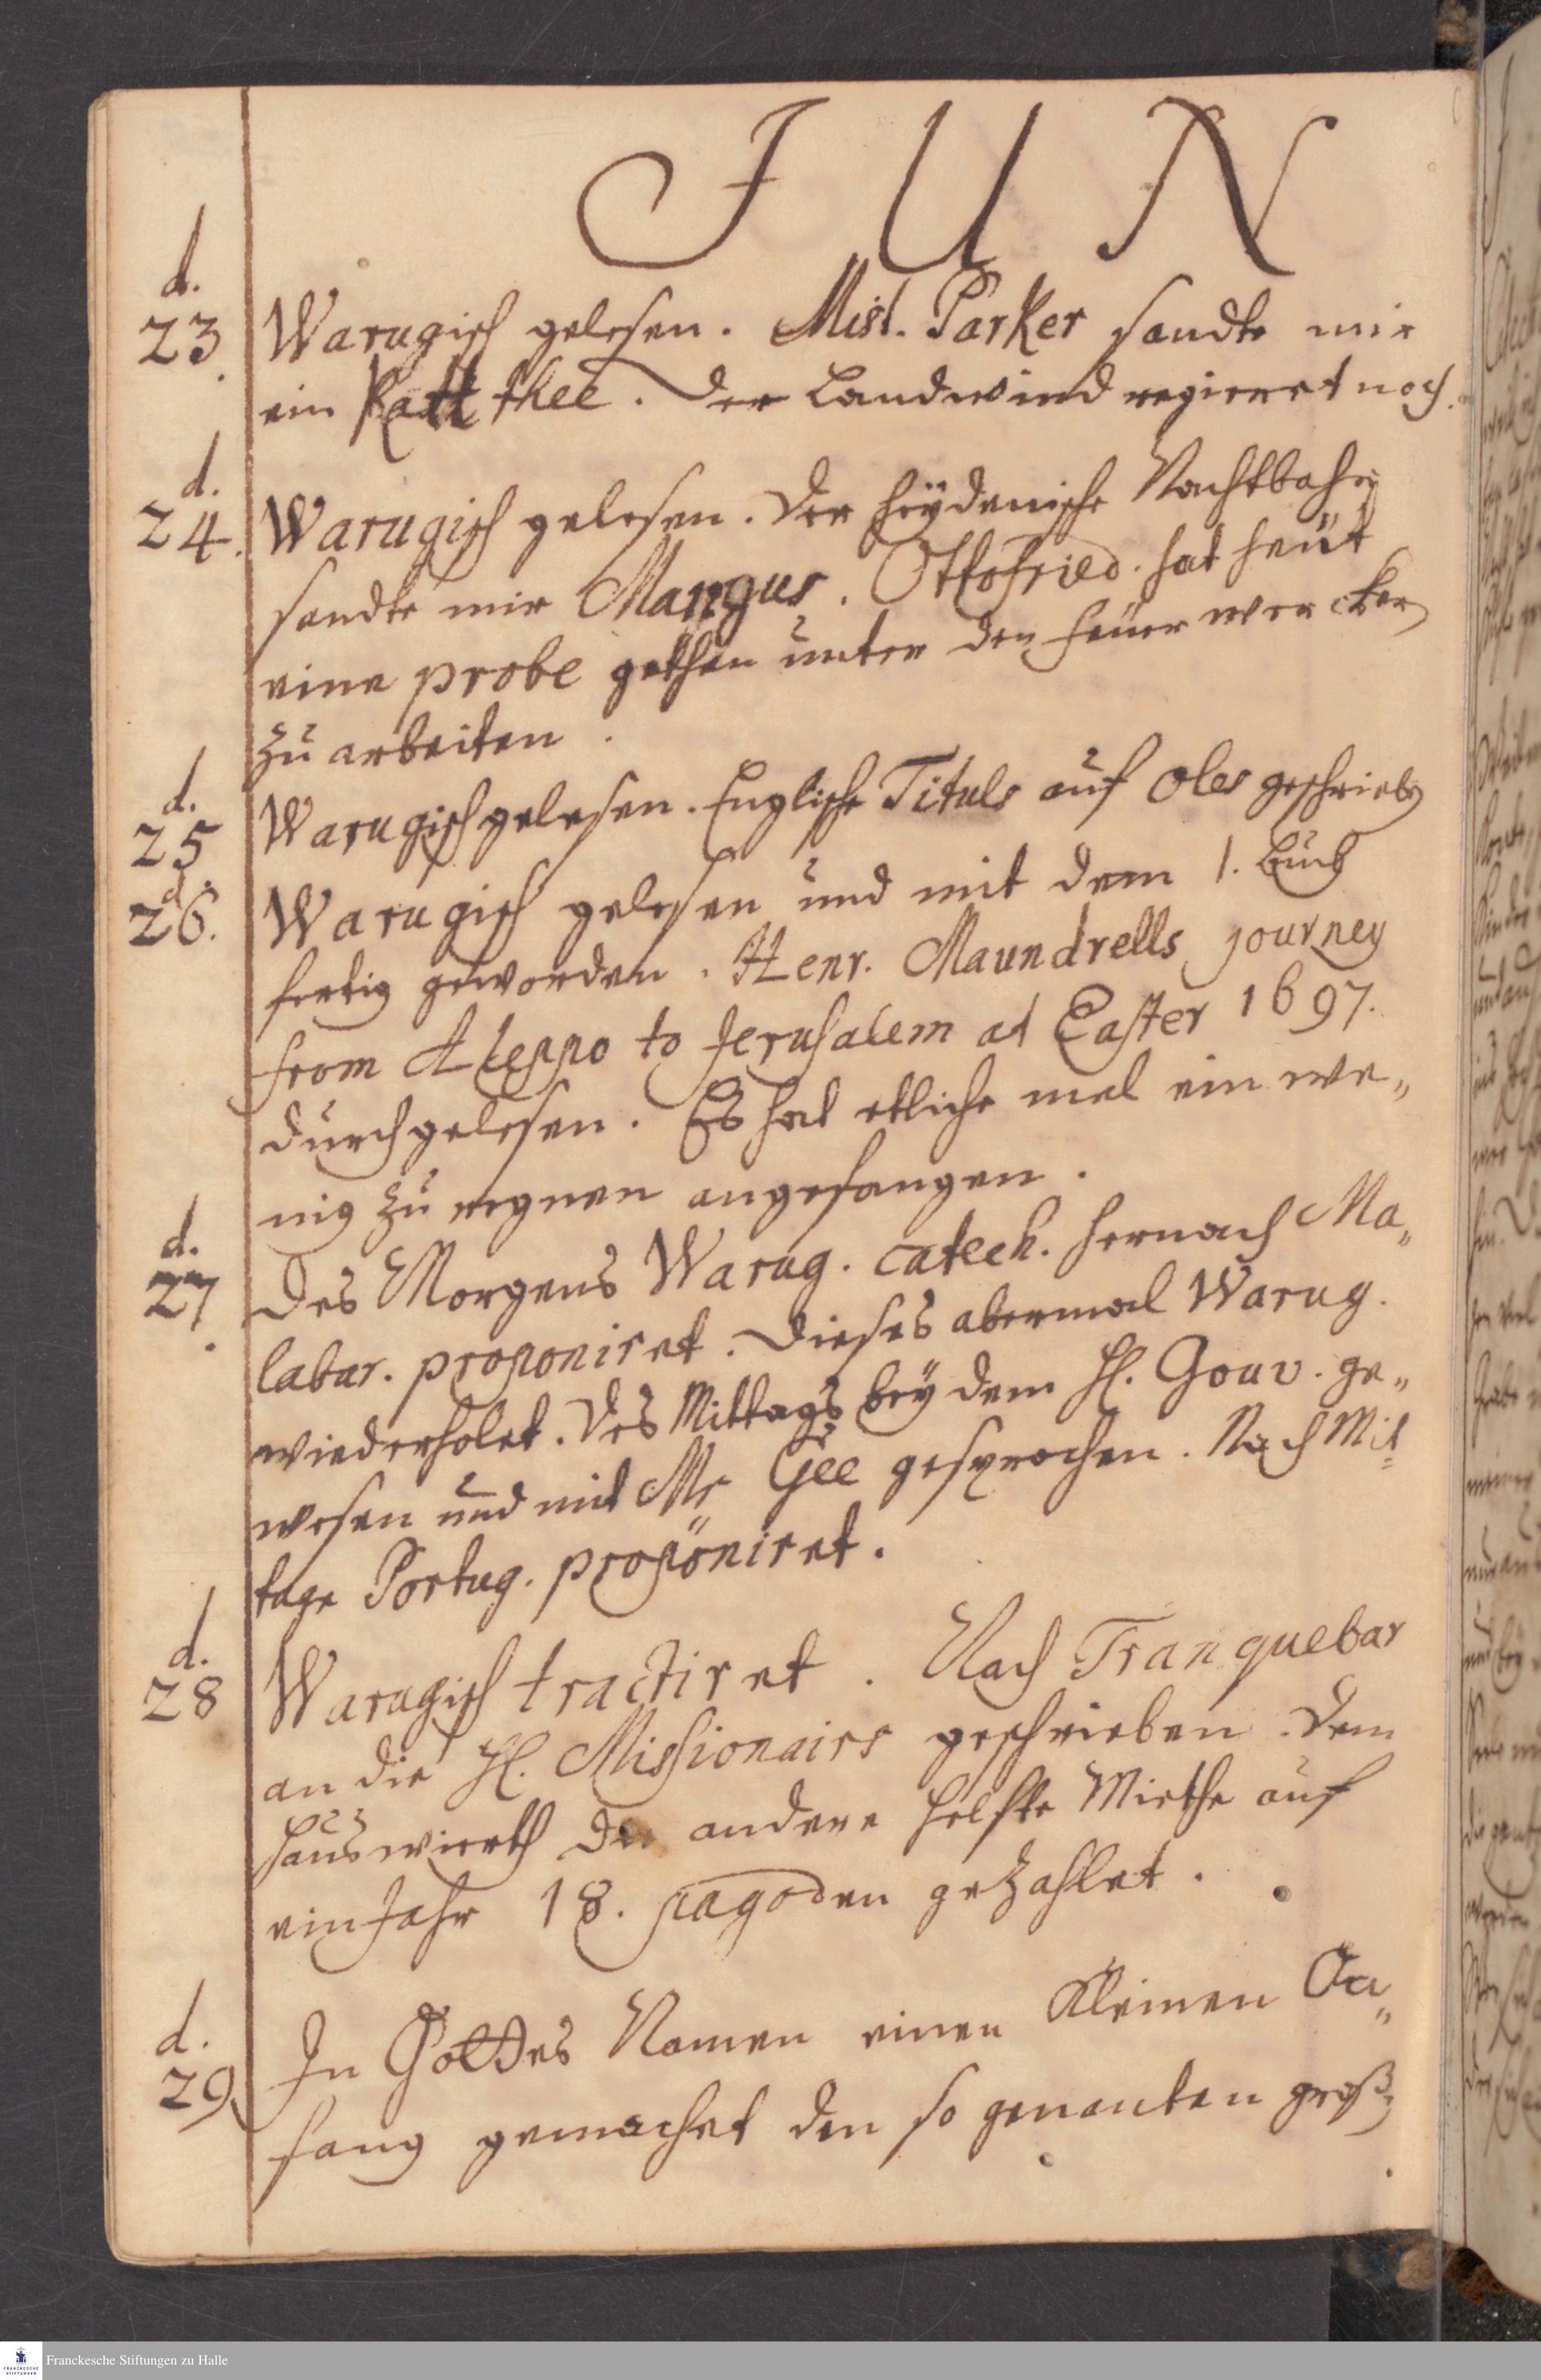 JUN
d.
23. Warugisch gelesen. Mist. Parker sandte mir
ein Katt thee. Der Landwind regieret noch.
d.
24. Warugisch gelesen. Der heÿdenische Nachtbahr
sandte mir Mangus. Ottofried. hat heüt
eine probe gethan unter den feuerwercker
zu arbeiten.
d.
25. Warugisch gelesen. Englische Tituls auf Oles geschrieben
d.
26. Warugisch gelesen und mit dem 1. Buch
fertig geworden. Henr. Maundrells journey
from Aleppo to Jerusalem at Easter 1697.
durchgelesen. Es hat etliche mal ein we„
nig zu regnen angefangen.
d.
27. Des Morgens Warug. catech. hernach Ma„
labar. proponiret. Dieses abermal Warug.
wiederholet. Des Mittags beÿ dem H. Gouv. ge„
wesen und mit Mr Gee gesprochen. Nach Mit
tage Portug. proponiret.
d.
28 Warugisch tractiret. Nach Tranquebar
an die H. Missionairs geschrieben. Dem
hauswierth die andere helfte Miethe auf
ein Jahr 18. pagoden gezahlet.
d.
29. In Gottes Namen einen Kleinen An„
fang gemachet den so genanten groß
Franckesche Stiftungen zu Halle